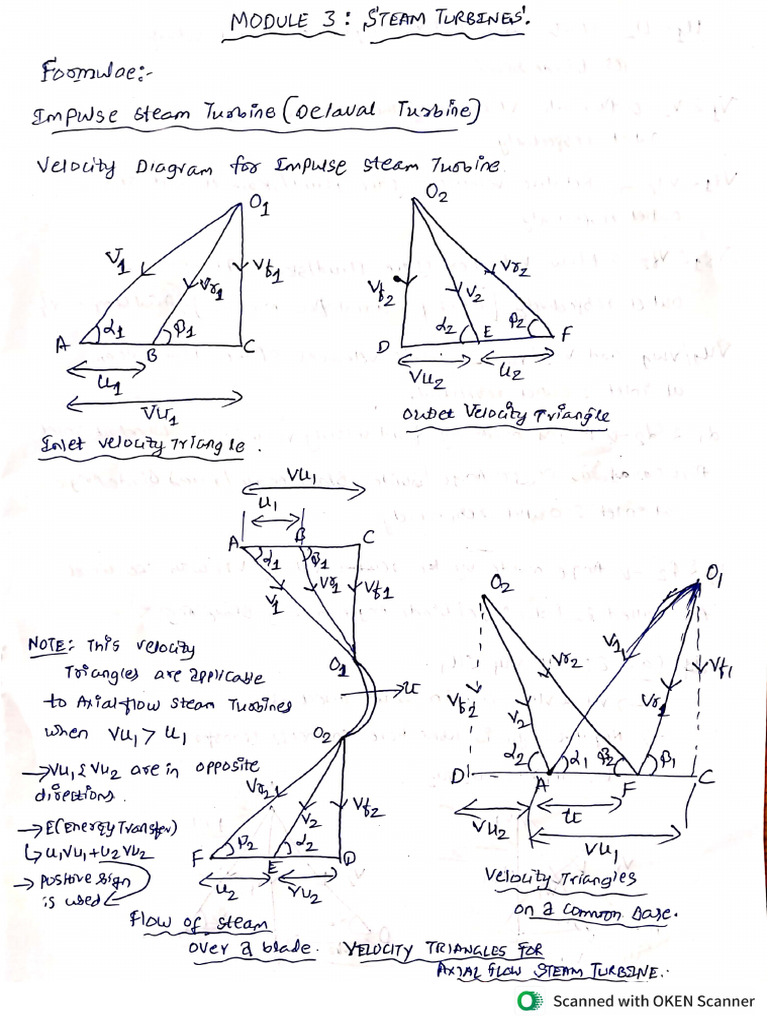 MODULE 3: STEAM TURBINES.
Formulae:-
Impulse steam Turbine (Delaval Turbine)
Velocity Diagram for Impulse steam Turbine.
O1
V1
Vr1
Vf1
α1
β1
A
B
C
u1
Vu1
Inlet velocity Triangle.
O2
Vf2
V2
Vr2
α2
β2
D
E
F
Vu2
u2
Outlet Velocity Triangle
Vu1
u1
A
B
C
α1
β1
V1
Vr1
Vf1
O1
u
O2
Vr2
V2
Vf2
β2
α2
F
E
D
u2
Vu2
Flow of steam
over a blade.
NOTE: This velocity
Triangles are applicable
to Axial flow steam Turbines
when Vu1 > u1
→ Vu1 & Vu2 are in opposite
directions.
→ E(Energy Transfer)
↳ u1Vu1+u2Vu2
→ Positive sign
is used
O2
O1
Vr2
V1
Vf2
V2
Vr1
Vf1
α2
α1
β2
β1
D
A
F
C
Vu2
u
Vu1
Velocity Triangles
on a common Base.
VELOCITY TRIANGLES FOR
AXIAL FLOW STEAM TURBINE.
Scanned with OKEN Scanner